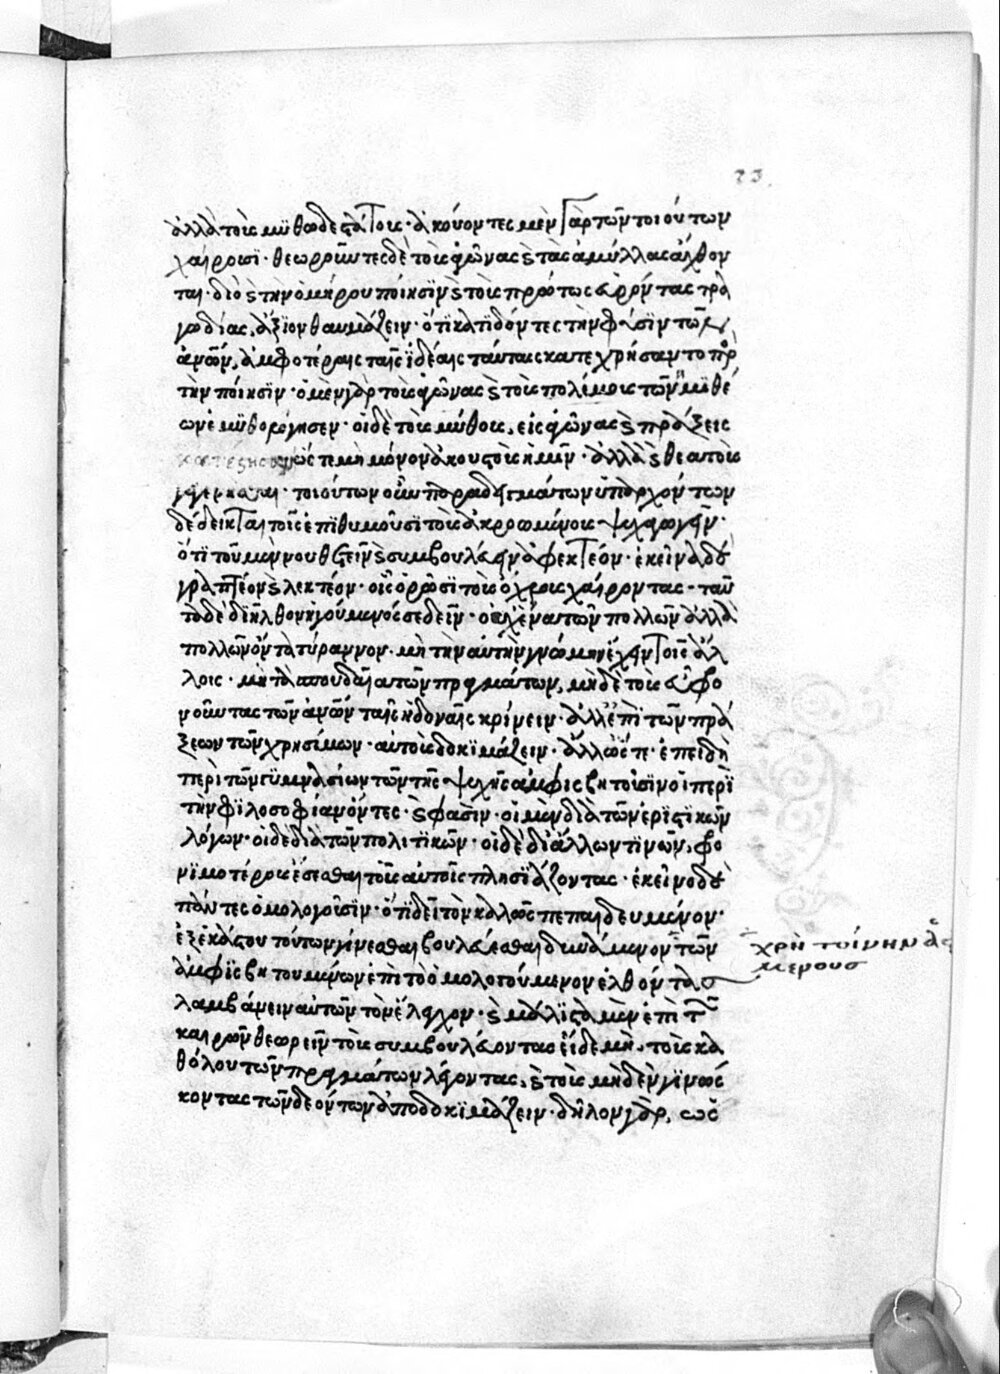 ἀλλὰ τοὺς μυθωδεστάτους· ἀκούοντες μὲν γὰρ τῶν τοιούτων
χαίρουσϊ· θεωροῦντες δὲ τοὺς ἀγῶνας καὶ τὰς ἁμύλλας ἄχθον
ται· διὸ καὶ τὴν ὁμήρου ποίησϊν καὶ τοὺς πρώτως εὑρόντας τρα
γωδίας, ἄξιον θαυμάζειν· ὅτϊ κατϊδόντες τὴν φύσϊν τῶν
ἀνῶν, ἀμφοτέραις ταῖς ἰδέαις ταύταις κατεχρήσαντο πρ
τὴν ποίησϊν· ὁ μὲν γὰρ τοὺς ἀγῶνας καὶ τοὺς πολέμους τῶν ἡμϊθέ
ων ἐμϋθολόγησεν· οἱ δὲ τοὺς μύθους, εἰς ἀγῶνας καὶ πράξεις
κατέστησαν ὥστε μὴ μόνον ἀκουστοὺς ἡμῖν· ἀλλὰ καὶ θεατοὺς
γεγενῆσθαι· τοιούτων οὖν παραδειγμάτων ὑπαρχόντων
δέδεικται τοῖς ἐπϊθυμοῦσϊ τοὺς ἀκροωμένους ψυχαγωγεῖν·
ὅτϊ τοῦ μὲν νουθετεῖν καὶ συμβουλεύειν ἀφεκτέον· ἐκεῖνα δὲ
γραπτέον καὶ λεκτέον· οἷς ὁρῶσϊ τοὺς ὄχλους χαίροντας· ταῦ
τα δὲ διῆλθον ἡγούμενός σε δεῖν· οὐχ ἕνα τῶν πολλῶν ἀλλὰ
πολλῶν ὄντα τύραννον· μὴ τὴν αὐτὴν γνώμην ἔχειν τοῖς ἄλ
λοις· μὴ τὰ σπουδαῖα τῶν πραγμάτων, μηδὲ τοὺς εὖ φρο
νοῦντας τῶν ἀνῶν ταῖς ἡδοναῖς κρίνειν· ἀλλ' ἐπὶ τῶν πρά
ξεων τῶν χρησίμων· αὐτοὺς δοκιμάζειν· ἄλλως τε· ἐπειδὴ
περὶ τῶν γϋμνασίων τῶν τῆς ψυχῆς ἀμφισβητοῦσϊν οἱ περὶ
τὴν φϊλοσοφίαν ὄντες· καὶ φασὶν· οἱ μὲν διὰ τῶν ἐρϊστϊκῶν
λόγων· οἱ δὲ διὰ τῶν πολιτϊκῶν· οἱ δὲ δι' ἄλλων τϊνῶν, φρο
νϊμοτέρους ἔσεσθαι τοὺς αὐτοῖς πλησϊάζοντας· ἐκεῖνο δὲ
πάντες ὁμολογοῦσϊν· ὅτϊ δεῖ τὸν καλῶς πεπαιδευμένον·
ἐξ ἑκάστου τούτων γίνεσθαι βουλεύεσθαι δυνάμενον· τῶν
ἀμφϊσβητουμένων ἐπὶ τὸ ὁμολογούμενον ἐλθόντα
χρὴ τοίνυν ἀφ
μένους
λαμβάνειν αὐτῶν τὸν ἔλεγχον· καὶ μάλϊστα μὲν ἐπὶ τῶν
καιρῶν θεωρεῖν τοὺς συμβουλεύοντας εἰ δὲ μὴ, τοὺς κα
θόλου τῶν πραγμάτων λέγοντας, καὶ τοὺς μηδὲν γϊνώς
κοντας τῶν δεόντων ἀποδοκϊμάζειν· δῆλον γὰρ, ὡς